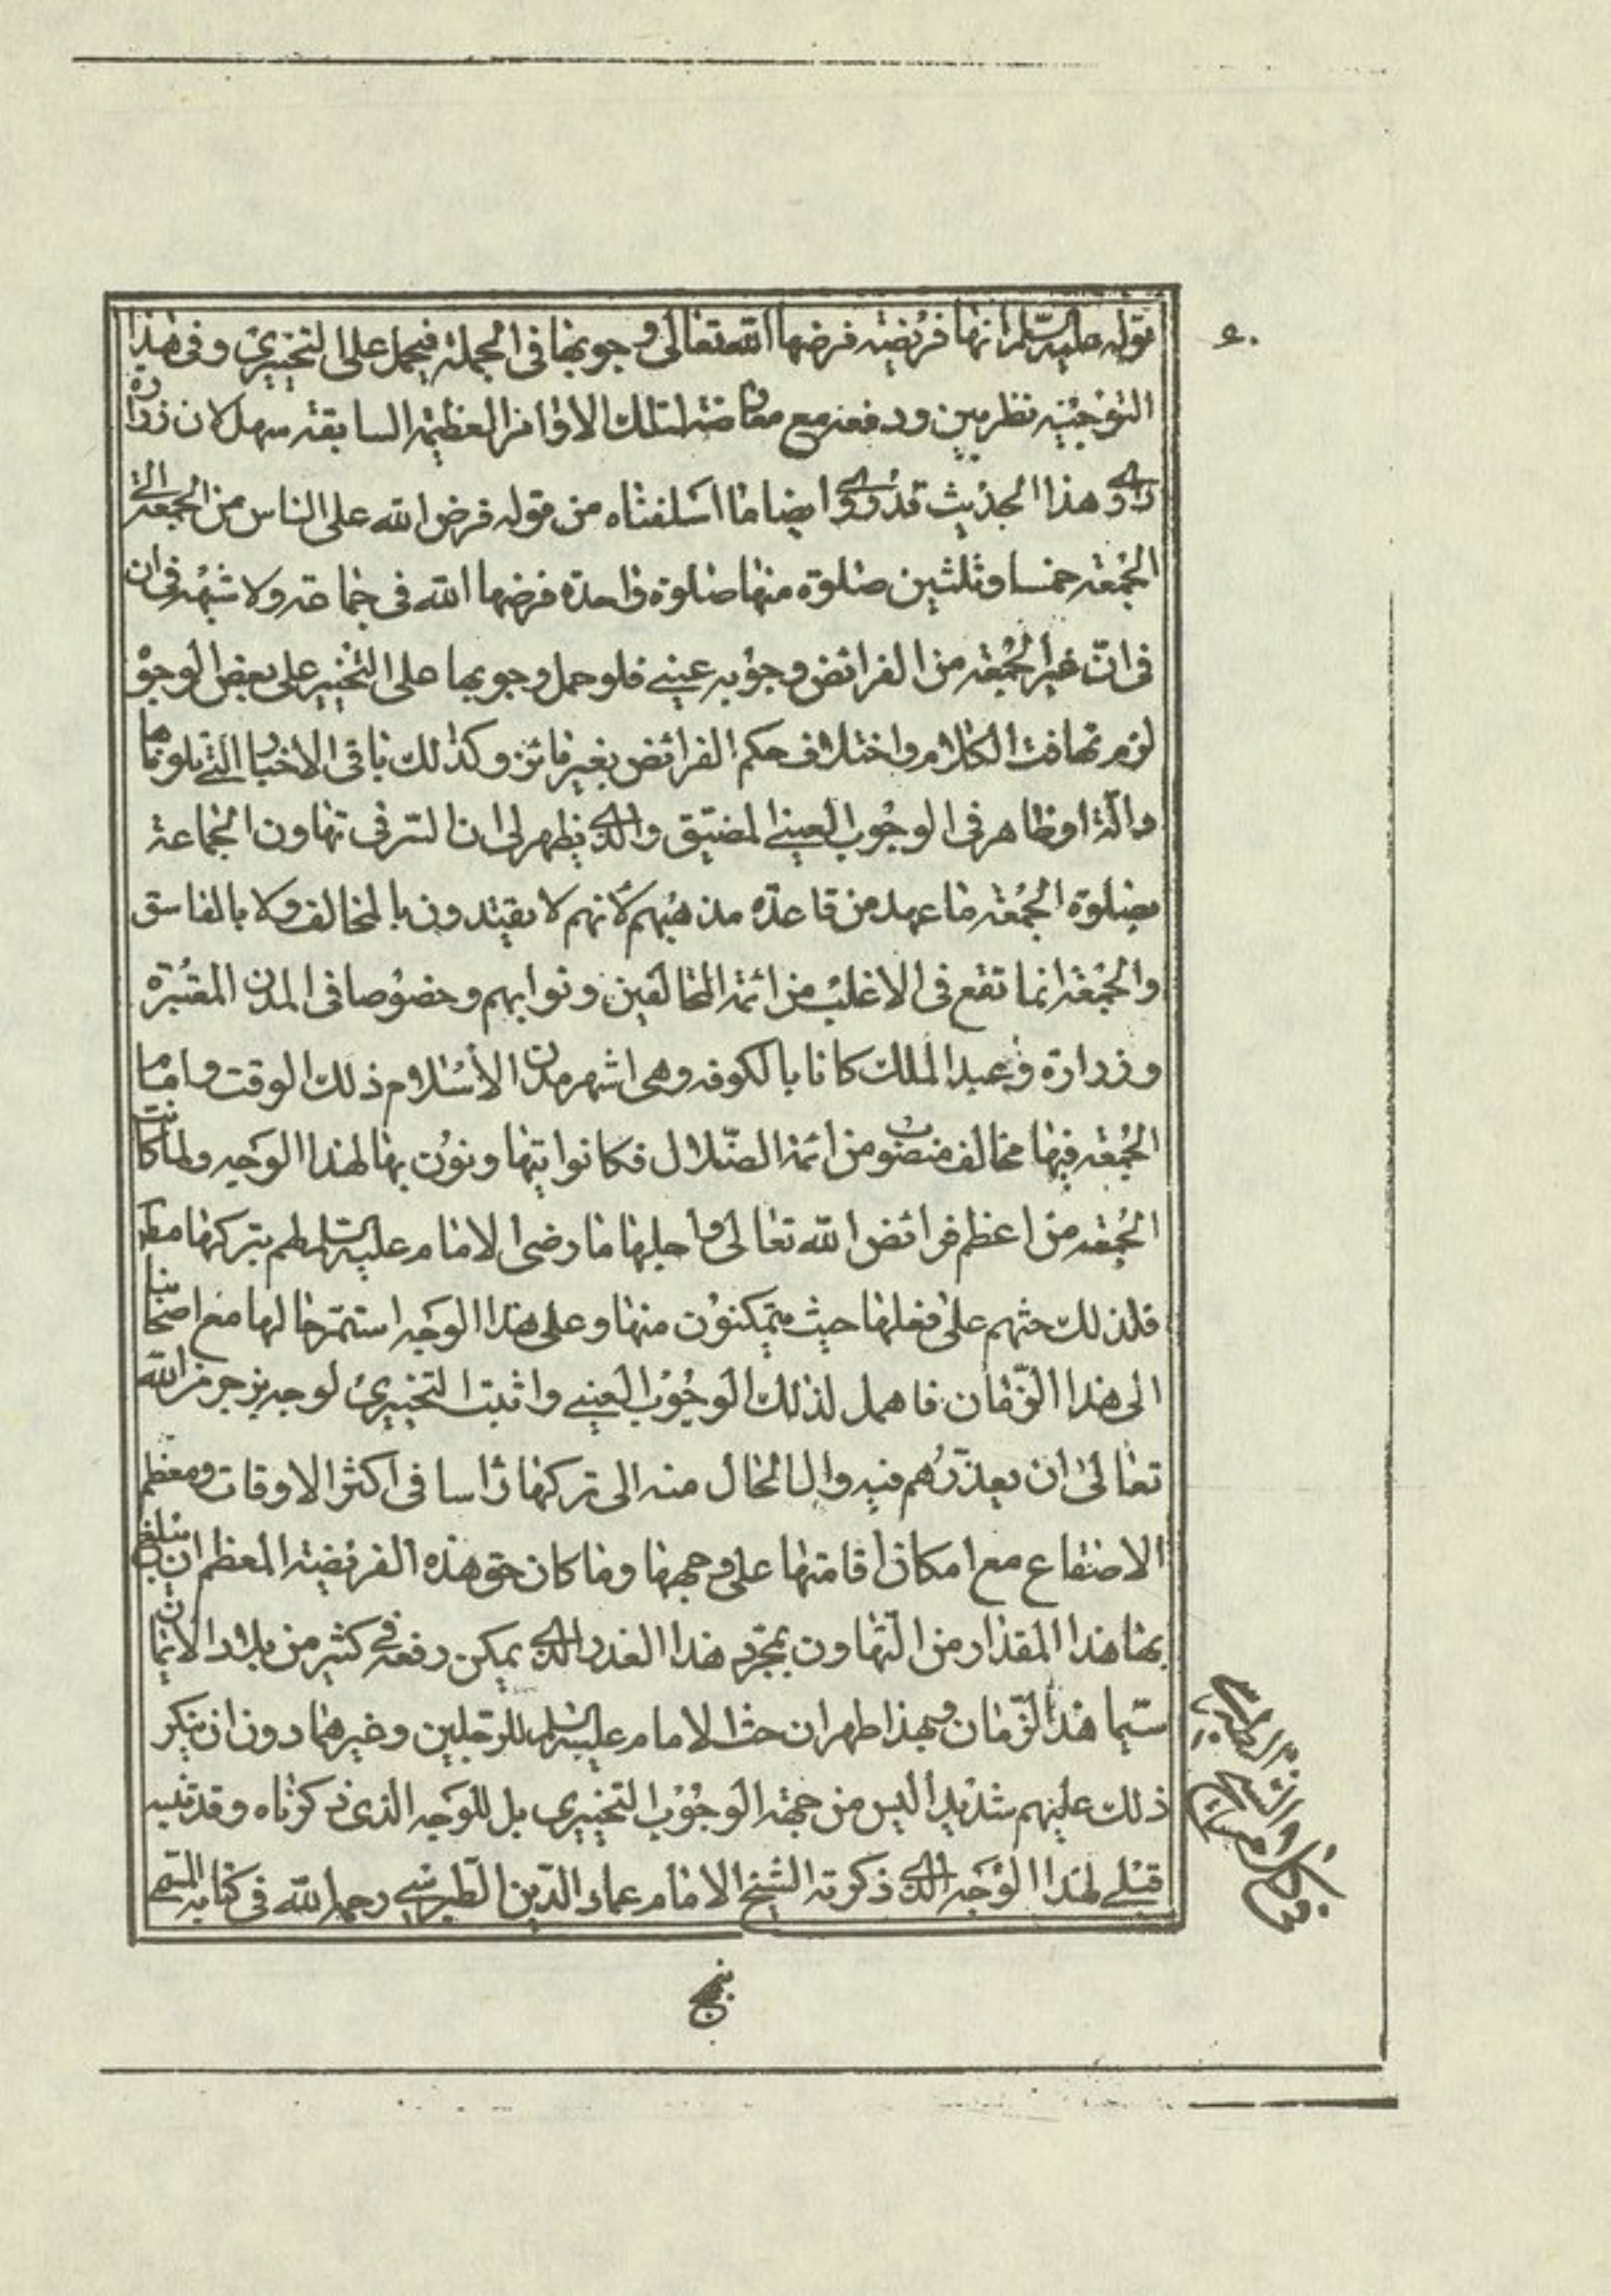 قوله عليه السلم انها فريضه فرضها الله تعالى وجوبها فى الجملة فيحمل على التخييرى وفى هذا
التوجيه نظر بين ودفعه مع معارضته لتلك الاوامر العظيمه السابقه سهل لان زرارة
راوى هذا الحديث قد روى ايضا ما اسلفناه من قوله فرض الله على الناس من الجمعة الى
الجمعه خمسا وثلثين صلوة منها صلوة واحدة فرضها الله فى جماعه ولا شبهه فى ان
فى ان غير الجمعه من الفرائض وجوبه عينى فلو حمل وجوبها على التخيير على بعض الوجوه
لزم تهافت الكلام واختلاف حكم الفرائض بغير فائز وكذلك باقى الاخبار التى تلوناها
دالة او ظاهر فى الوجوب العينى المضيق والذى يظهر لى ان السر فى تهاون الجماعة
بصلوة الجمعه ما عهد من قاعدة مذهبهم لأنهم لا يقتدون بالمخالف ولا بالفاسق
والجمعة انما تقع فى الاغلب من ائمة المخالفين ونوابهم وخصوصا فى المدن المعتبرة
وزرارة وعبد الملك كانا بالكوفه وهى اشهر مدن الأسلام ذلك الوقت وامام
الجمعه فيها مخالف منصوب من ائمة الضلال فكانوا يتهاونون بها لهذا الوجه ولما كانت
الجمعه من اعظم فرائض الله تعالى واجلها ما رضى الامام عليه السلم لهم بتركها مطلقا
فلذلك حثهم على فعلها حيث يتمكنون منها وعلى هذا الوجه استمر حالها مع اصحابنا
الى هذا الزمان فاهمل لذلك الوجوب العينى واثبت التخييرى لوجه يرجو من الله
تعالى ان يعذرهم فيه وال الحال منه الى تركها رأسا فى اكثر الاوقات ومعظم
الاصقاع مع امكان اقامتها على وجهها وما كان حق هذه الفريضة المعظم ان يبلغ
بها هذا المقدار من التهاون بمجرد هذا العذر الذى يمكن رفعه فى كثير من بلاد الايمان
سيما هذا الزمان وبهذا ظهر ان حث الامام عليه السلم للرجلين وغيرهما دون ان ينكر
ذلك عليهم شديدا ليس من جهة الوجوب التخييرى بل للوجه الذى ذكرناه وقد تنبه
قبلى لهذا الوجه الذى ذكرته الشيخ الامام عماد الدين الطبرسى رحمه الله فى كتابه المسمى